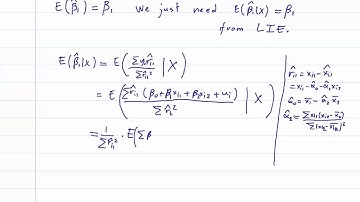 E(β̂₁) = β₁ We just need E(β̂₁|X) = β₁
from LIE.
E(β̂₁|X) = E( Σyᵢr̂ᵢ₁ / Σr̂ᵢ₁² | X )
= E( Σr̂ᵢ₁ (β₀ + β₁xᵢ₁ + β₂xᵢ₂ + uᵢ) / Σr̂ᵢ₁² | X )
= 1 / Σr̂ᵢ₁² · E(Σβ
r̂ᵢ₁ = xᵢ₁ - x̂ᵢ₁
= xᵢ₁ - α̂₀ - α̂₂xᵢ₂
α̂₀ = x̄₁ - α̂₂ x̄₂
α̂₂ = Σxᵢ₁(xᵢ₂ - x̄₂) / Σ(xᵢ₂ - x̄₂)²